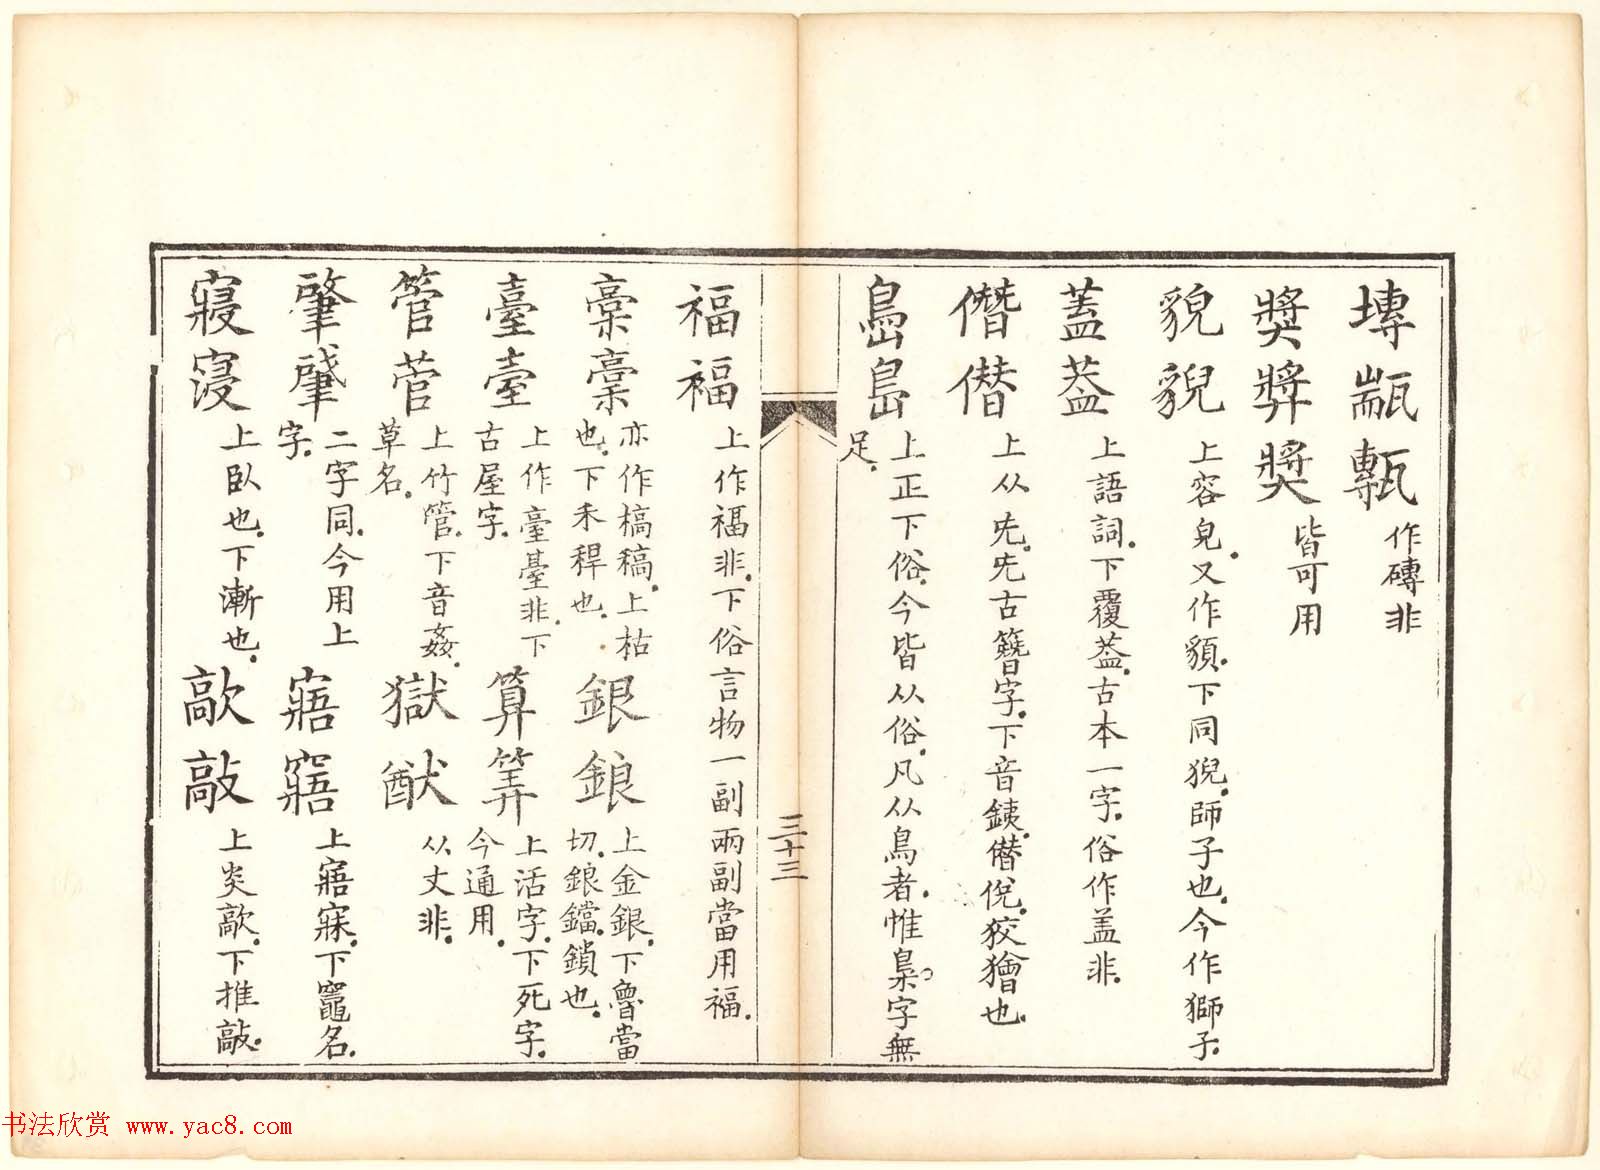 塼甎甎 作磚非
獎弊獎 皆可用
貌貎 上容皃又作䫉下同猊師子也今作獅子
蓋葢 上語詞下覆葢古本一字俗作盖非
僭僣 上从兂兂古簪字下音銕僣侻狡獪也
㠀島 上正下俗今皆从俗凡从鳥者惟梟字無足
三十三
福褔 上作福非下俗言物一副兩副當用褔
稾藁 亦作槁稿上枯也下禾稈也
銀鋃 上金銀下魯當切鋃鐺鎖也
臺臺 上作臺䑓非下古屋字
算筭 上活字下死字今通用
管菅 上竹管下音姦草名
獄猷 从丈非
肈肇 二字同今用上字
寤㝛 上寤寐下竈名
寢寖 上臥也下漸也
歊敲 上炎歊下推敲
书法欣赏 www.yac8.com